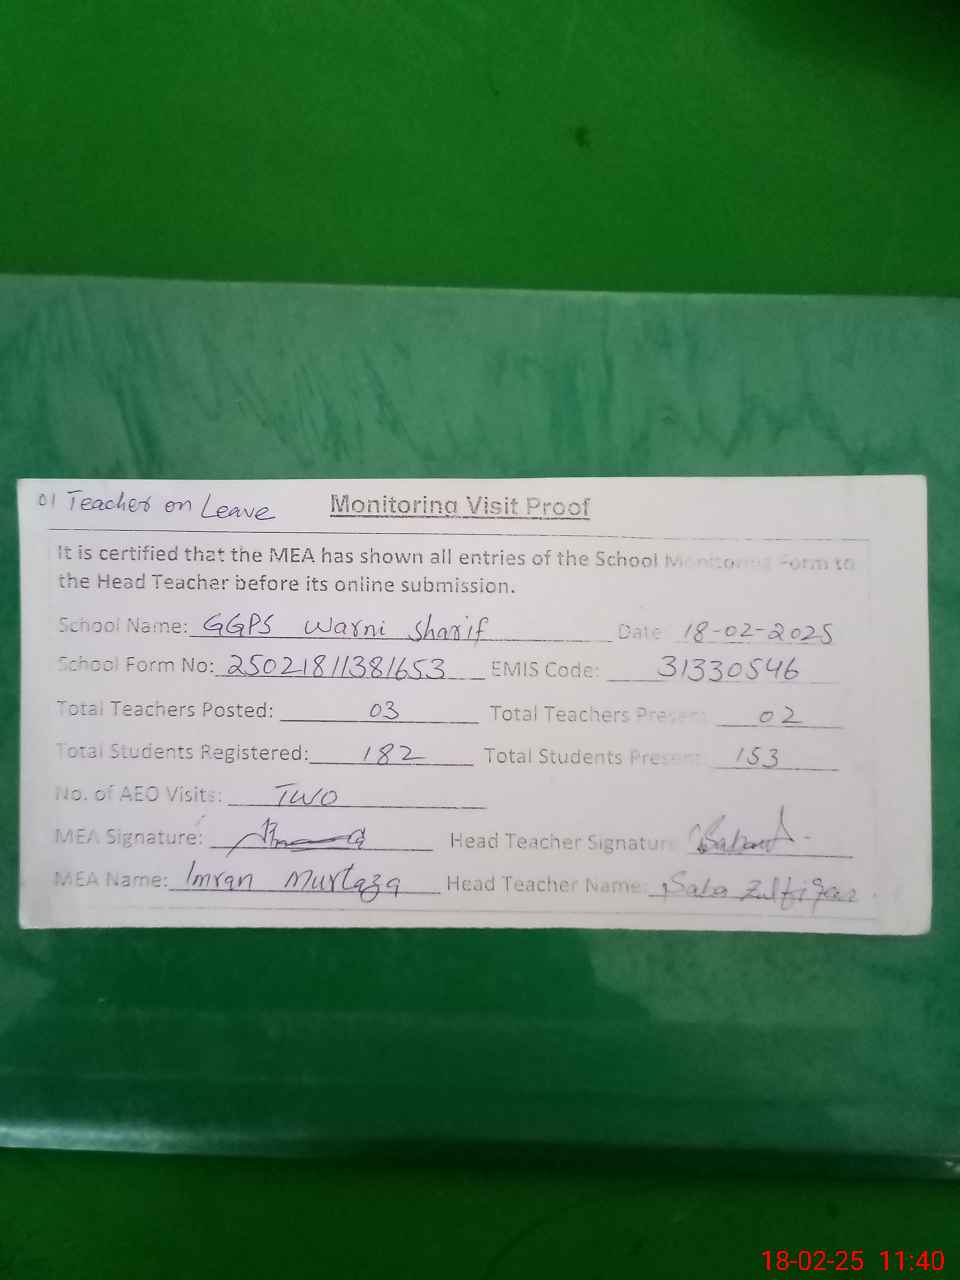 01 Teacher on Leave Monitoring Visit Proof
It is certified that the MEA has shown all entries of the School Monitoring Form to
the Head Teacher before its online submission.
School Name: GGPS Warni Sharif Date 18-02-2025
School Form No: 25021811381653 EMIS Code: 31330546
Total Teachers Posted: 03 Total Teachers Present 02
Total Students Registered: 182 Total Students Present 153
No. of AEO Visits: Two
MEA Signature: Head Teacher Signature
MEA Name: Imran Murtaza Head Teacher Name: Saba Zulfiqar
18-02-25 11:40